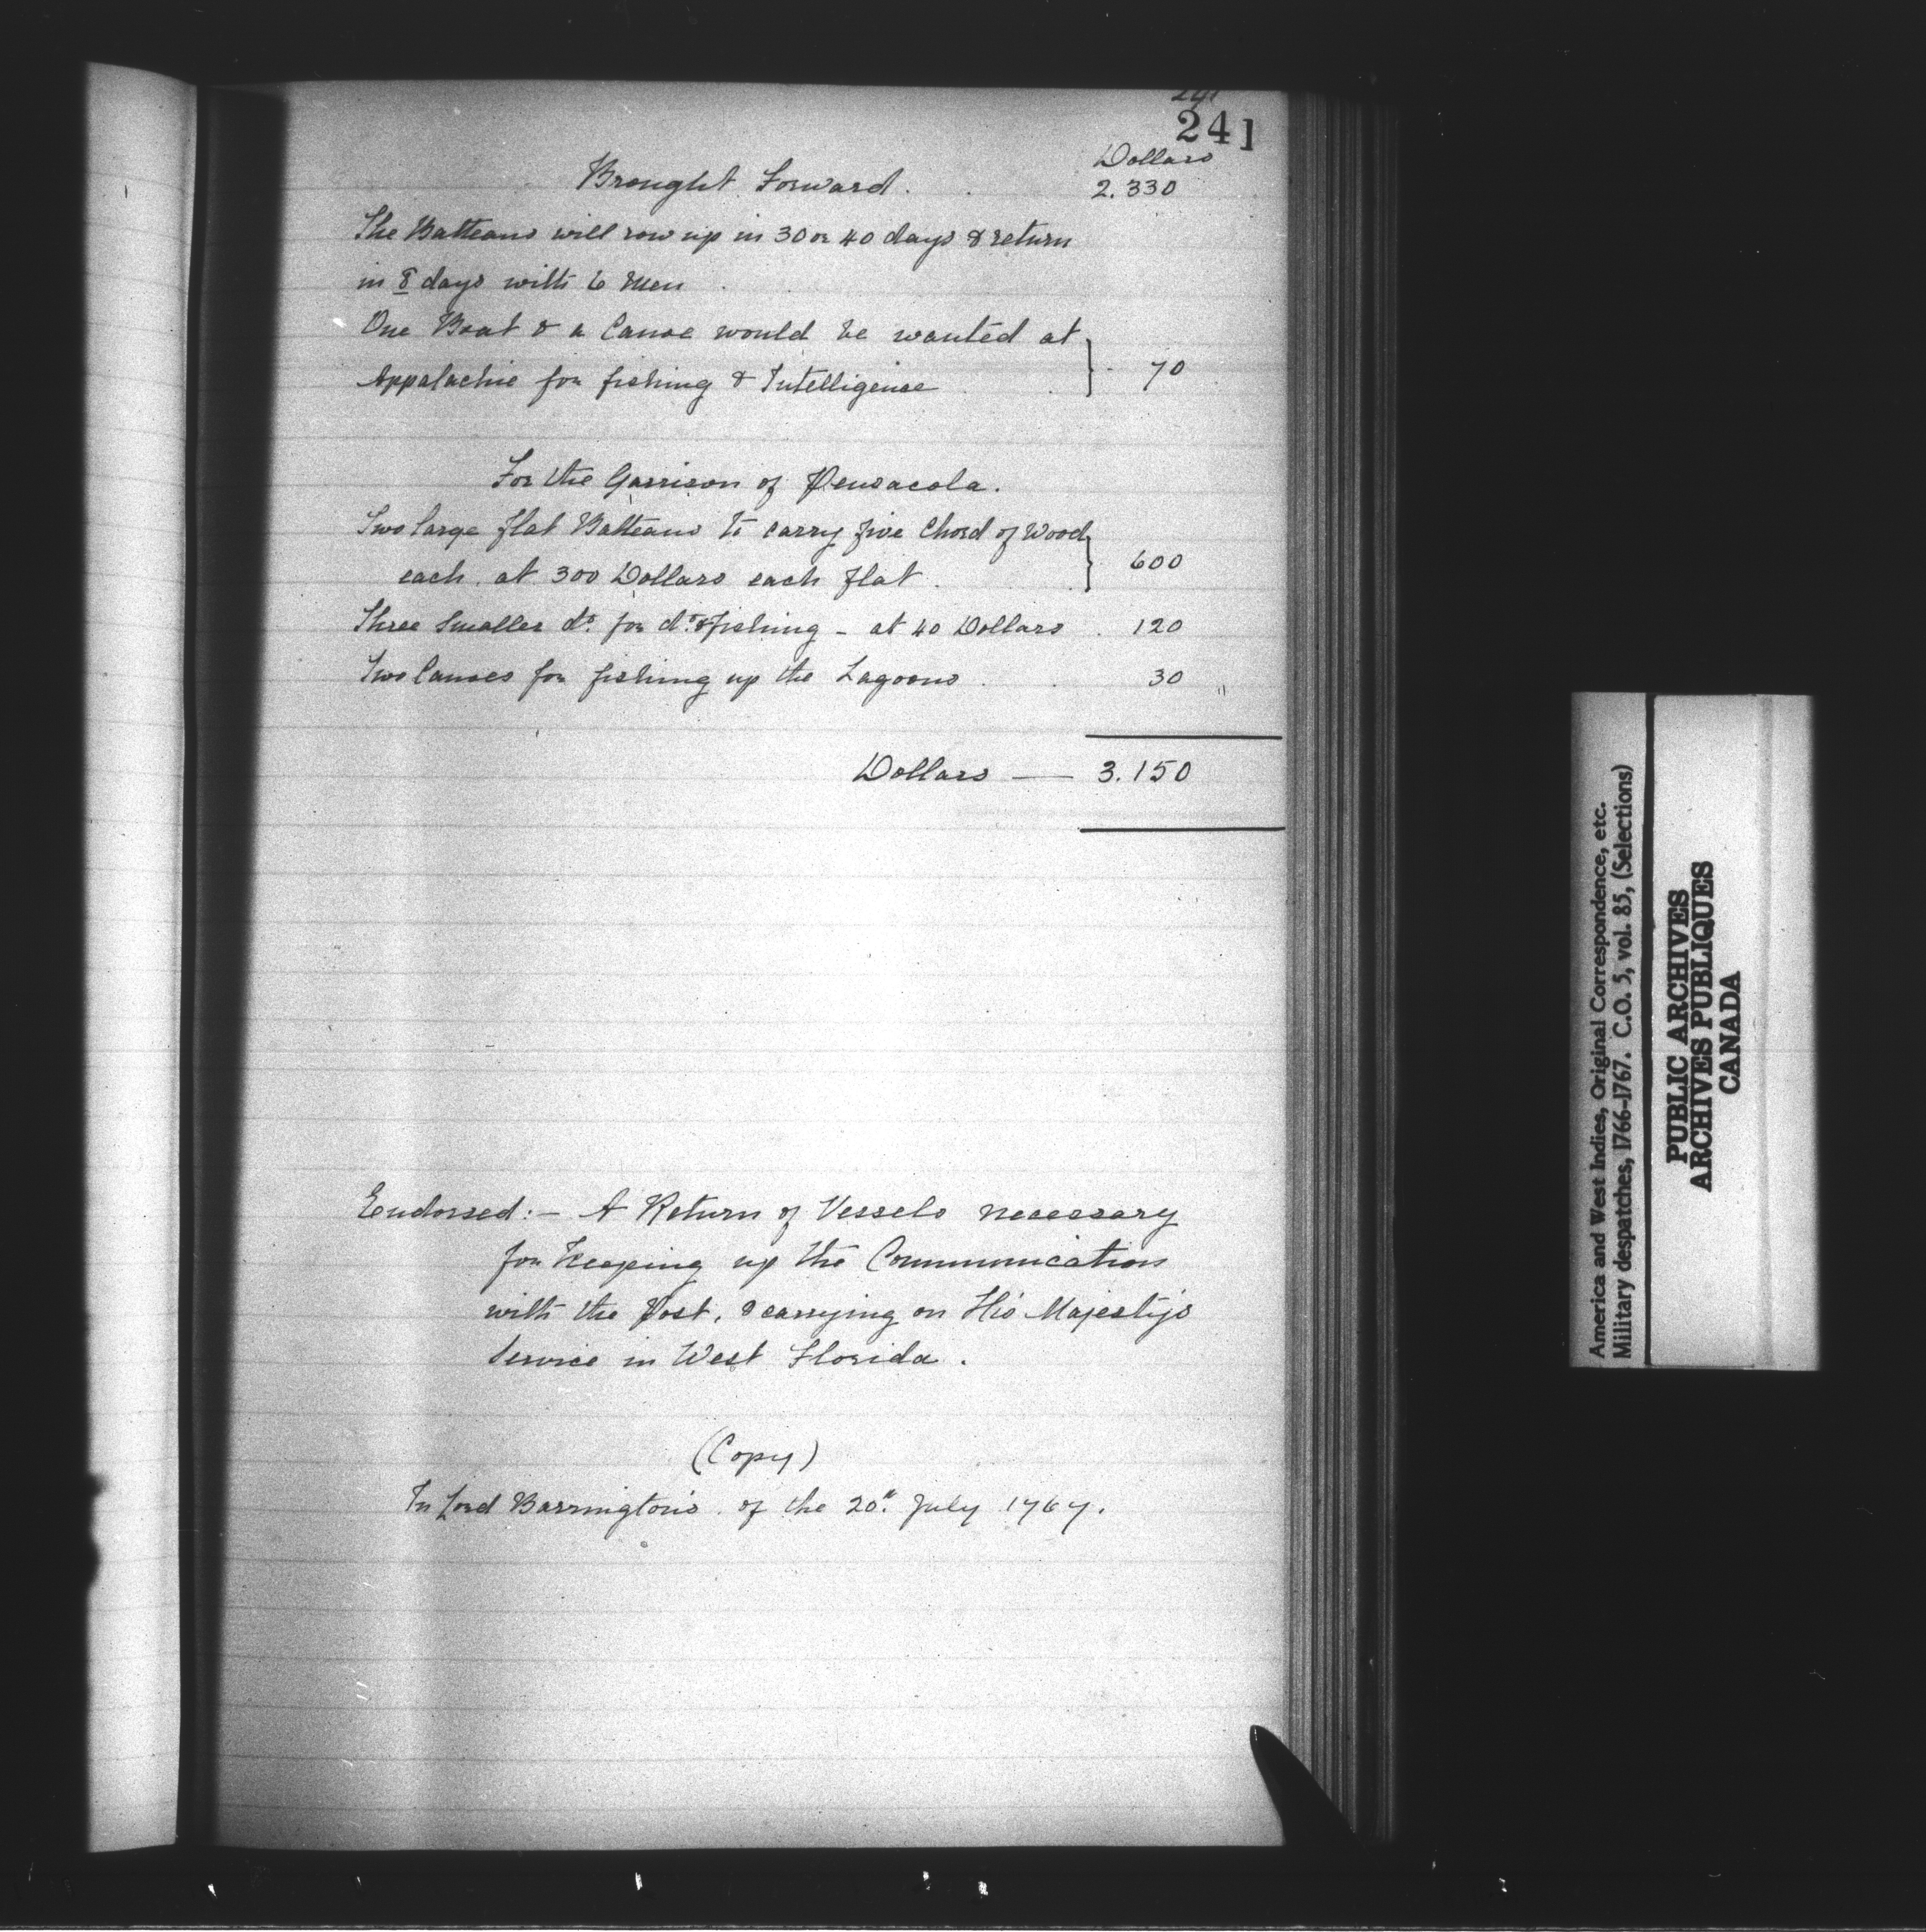 241
241
Dollars
Brought Forward. 2.330
The Batteaus will row up in 30 or 40 days & return
in 8 days with 6 Men
One Boat & a Canoe would be wanted at
Appalachie for fishing & Intelligence } 70
For the Garrison of Pensacola.
Two large flat Batteaus to carry five Chord of Wood
each. at 300 Dollars each flat. } 600
Three Smaller do. for do. & fishing - at 40 Dollars . 120
Two Canoes for fishing up the Lagoons . . 30 "
Dollars — 3.150
Endorsed:- A Return of Vessels necessary
for Keeping up the Communication
with the Post, & carrying on His Majesty's
Service in West Florida.
(Copy)
In Lord Barrington's of the 20th. July 1767.
America and West Indies, Original Correspondence, etc.
Military despatches, 1766-1767. C.O. 5, vol. 85, (Selections)
PUBLIC ARCHIVES
ARCHIVES PUBLIQUES
CANADA